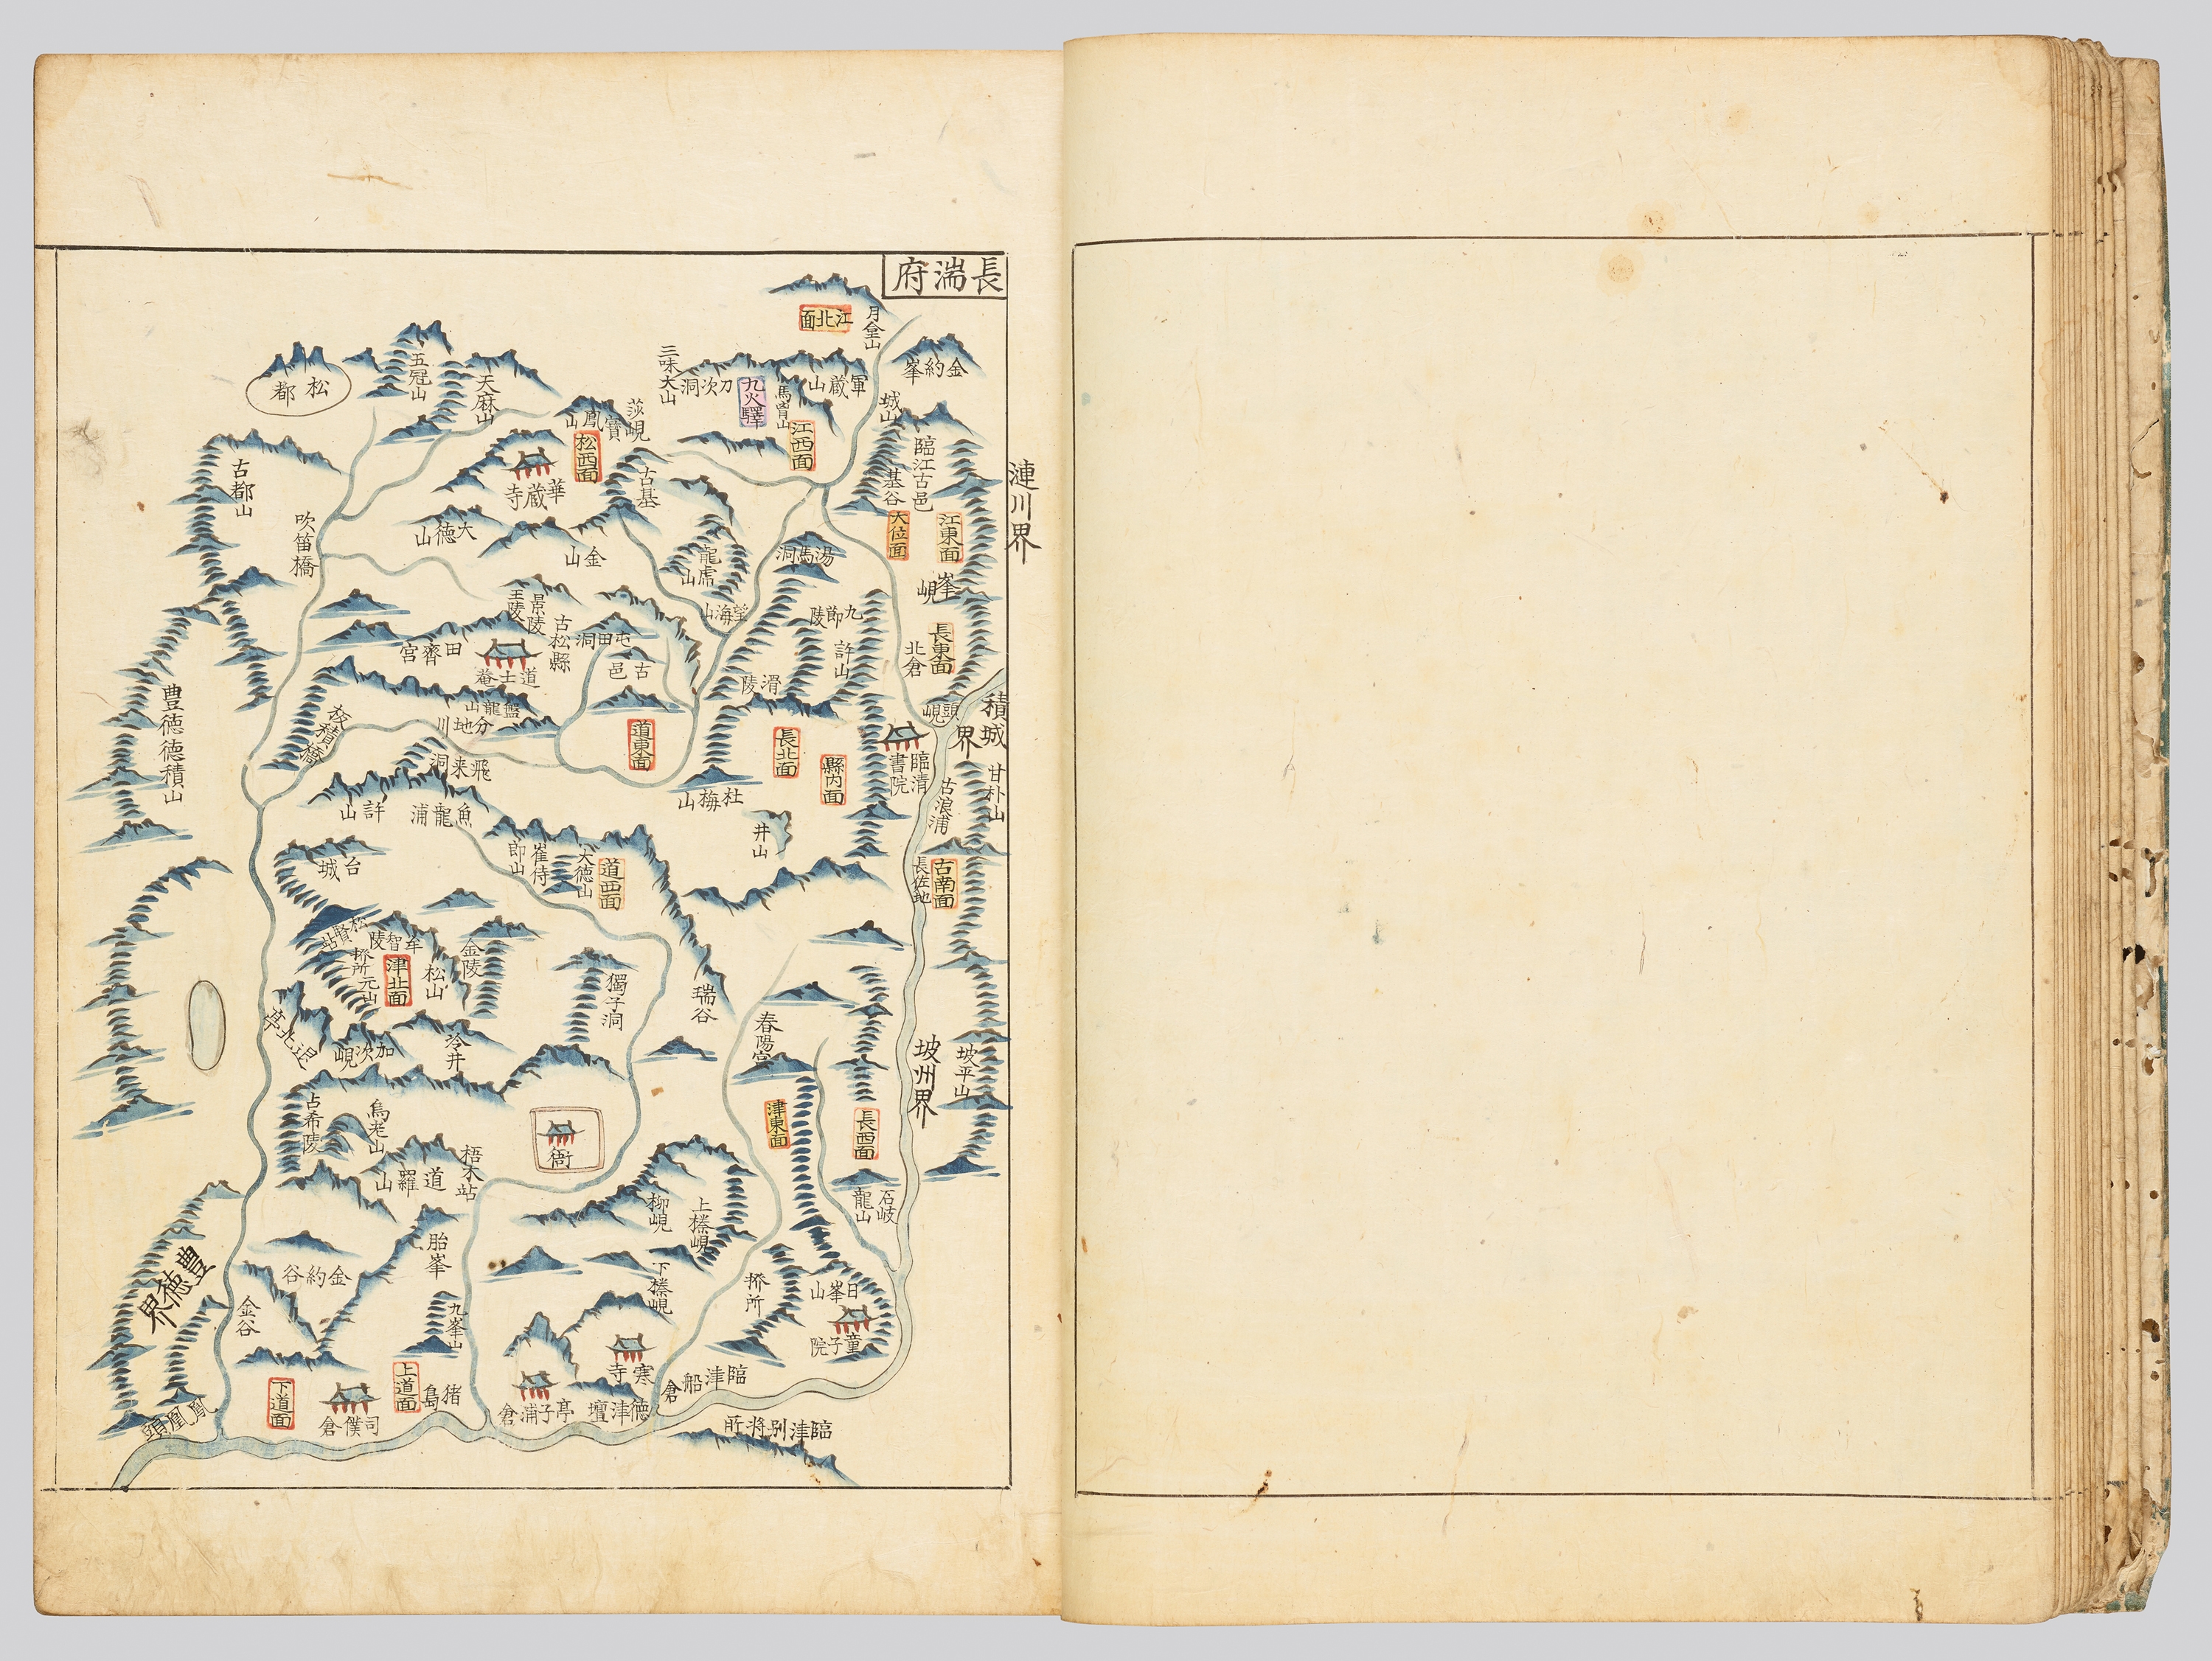 長湍府
江北面
月𡌶山
金約峯
松都
五冠山
天麻山
三味大山
刀次洞
九火驛
馬胄山
軍蔵山
江西面
城山
莎峴
寳鳳山
松西面
華蔵寺
古基
臨江古邑
基谷
漣川界
古都山
吹笛橋
大徳山
金山
龍虎山
湯馬洞
大位面
江東面
峯峴
景陵
王陵
望海山
九節陵
古松縣
屯田洞
古邑
許山
北倉
長東面
田齊宮
道士菴
滑陵
豊徳徳積山
盤龍山
分地川
道東面
長北面
縣内面
頭峴
積城界
臨清書院
甘朴山
飛来洞
杜梅山
古浪浦
許山
魚龍浦
井山
崔侍郎山
大徳山
道西面
長佐地
古南面
台城
松賢站
牟智陵
津北面
松山
金陵
獨子洞
瑞谷
春陽宮
坡州界
坡平山
加次峴
冷井
占希陵
烏老山
道羅山
梧木站
衙
津東面
長西面
石岐
龍山
柳峴
上榛峴
下榛峴
胎峯
金約谷
金谷
九峯山
豊徳界
日峯山
童子院
寒寺
臨津船倉
徳津壇
亭子浦倉
猪島
上道面
司僕倉
下道面
鳳凰頭
臨津別將所